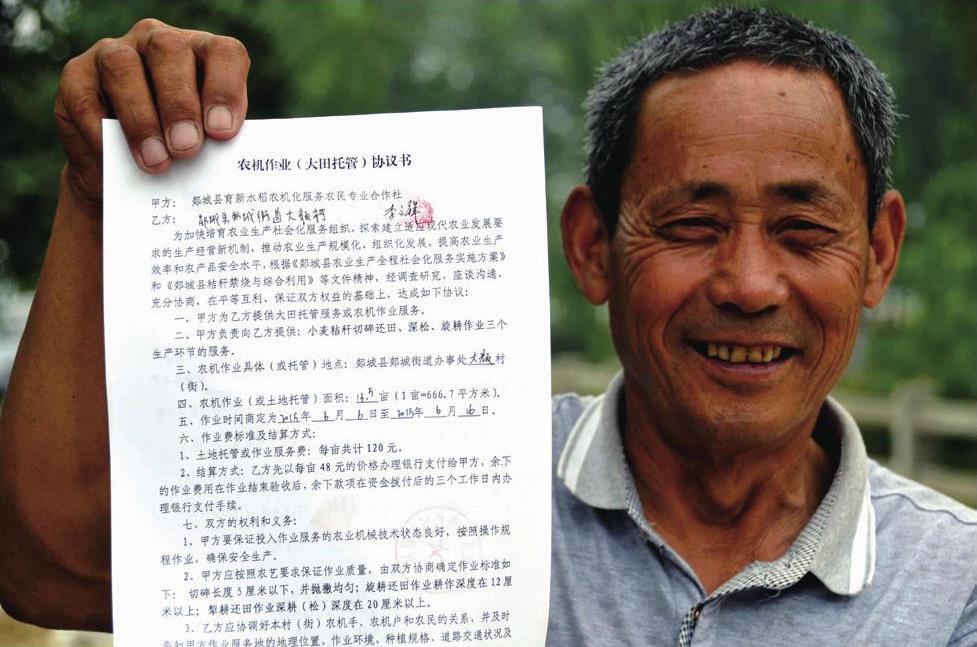 农机作业（大田托管）协议书
甲方： 郯城县育新水稻农机化服务农民专业合作社
乙方： 郯城县郯城街道大 村
为加快培育农业生产社会化服务组织，探索建立适应现代农业发展要
求的生产经营新机制，推动农业生产规模化、组织化发展，提高农业生产
效率和农产品安全水平，根据《郯城县农业生产全程社会化服务实施方案》
和《郯城县秸秆禁烧与综合利用》等文件精神，经调查研究、座谈沟通，
充分协商，在平等互利、保证双方权益的基础上，达成如下协议：
一、甲方为乙方提供大田托管服务或农机作业服务。
二、甲方负责向乙方提供：小麦秸秆切碎还田、深松、旋耕作业三个
生产环节的服务。
三、农机作业具体（或托管）地点：郯城县郯城街道办事处大 村
（街）。
四、农机作业（或土地托管）面积：13.5亩（1亩=666.7平方米）。
五、作业时间商定为2015年 6 月 6 日至2015年 6 月 16 日。
六、作业费标准及结算方式：
1、土地托管或作业服务费：每亩共计120元。
2、结算方式：乙方先以每亩48元的价格办理银行支付给甲方，余下
的作业费用在作业结束验收后，余下款项在资金拨付后的三个工作日内办
理银行支付手续。
七、双方的权利和义务：
1、甲方要保证投入作业服务的农业机械技术状态良好，按照操作规
程作业，确保安全生产。
2、甲方应按照农艺要求保证作业质量，由双方协商确定作业标准如
下： 切碎长度5厘米以下，并抛撒均匀；旋耕还田作业耕作深度在12厘
米以上；犁耕还田作业深耕（松）深度在20厘米以上。
3、乙方应协调好本村（街）农机手、农机户和农民的关系，并及时
告知甲方作业服务地的地理位置，作业环境、种植规格、道路交通状况及